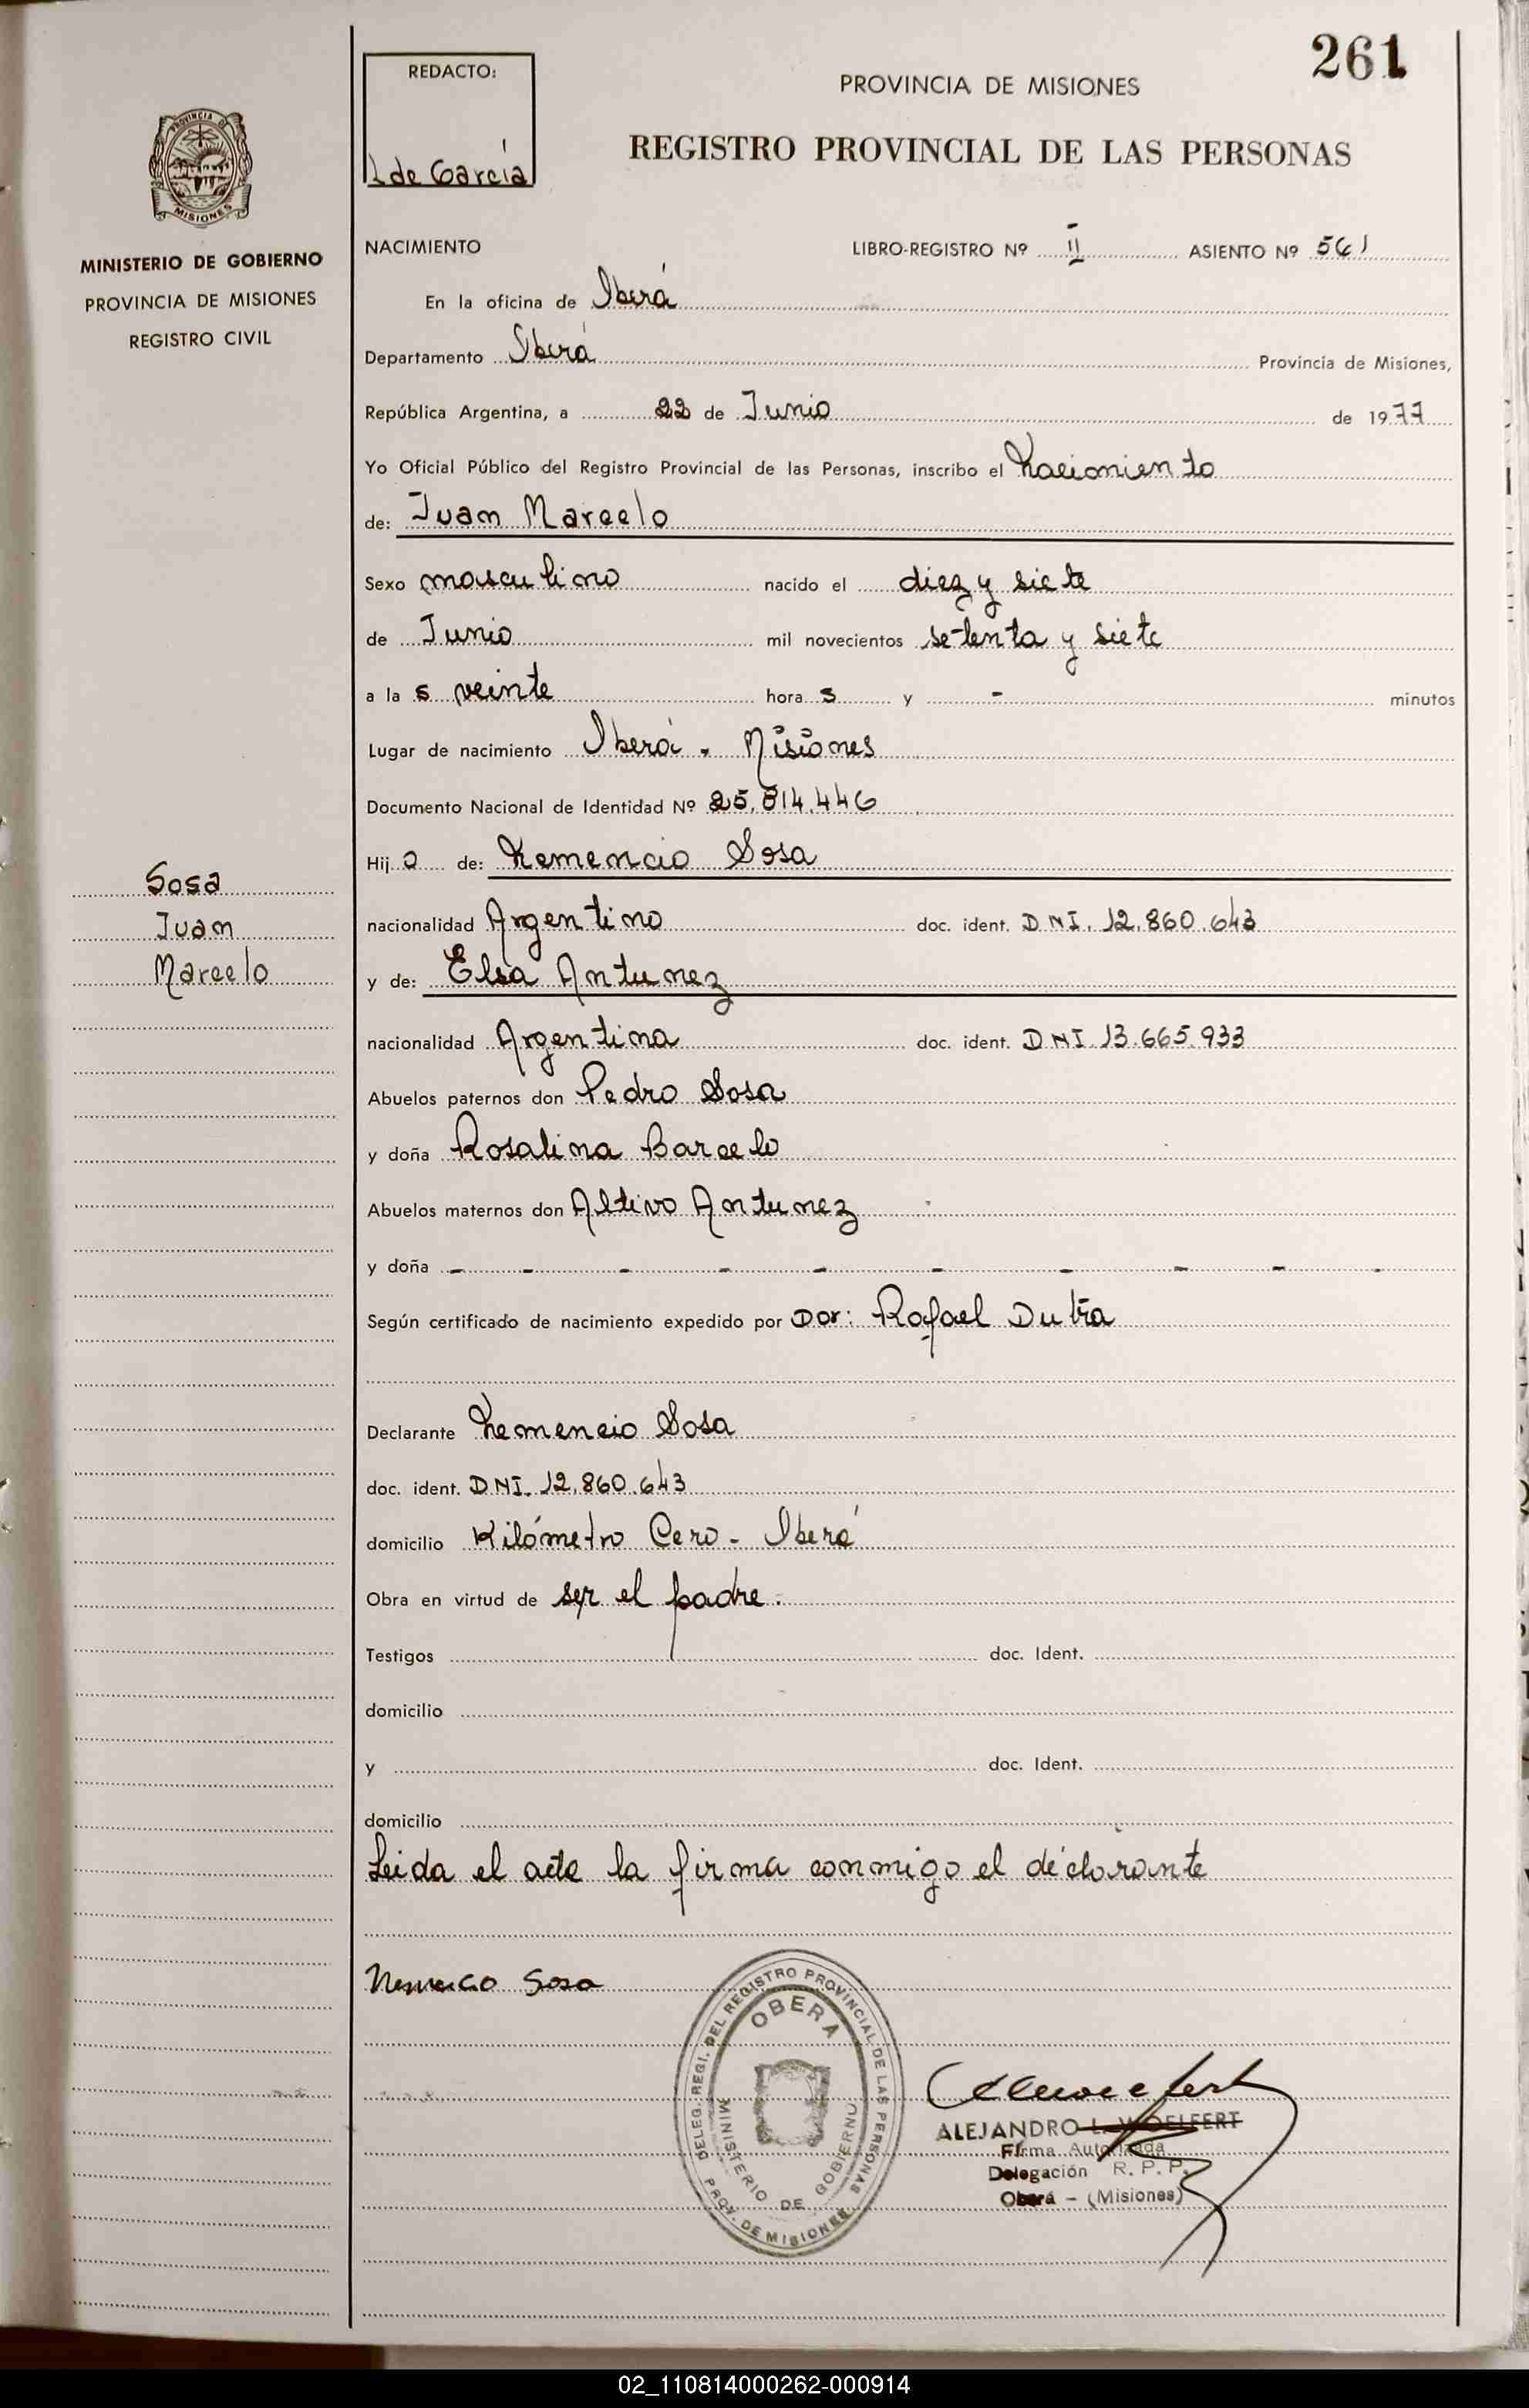 261
REDACTO:
L de García
PROVINCIA DE MISIONES
REGISTRO PROVINCIAL DE LAS PERSONAS
PROVINCIA DE
MISIONES
MINISTERIO DE GOBIERNO
PROVINCIA DE MISIONES
REGISTRO CIVIL
NACIMIENTO LIBRO-REGISTRO Nº II ASIENTO Nº 561
En la oficina de Oberá
Departamento Oberá Provincia de Misiones,
República Argentina, a 22 de Junio de 1977
Yo Oficial Público del Registro Provincial de las Personas, inscribo el Nacimiento
de: Juan Marcelo
Sexo masculino nacido el diez y siete
de Junio mil novecientos setenta y siete
a la s veinte hora s y - minutos
Lugar de nacimiento Oberá - Misiones
Documento Nacional de Identidad Nº 25.814.446
Hij o de: Nemencio Sosa
Sosa
Juan
Marcelo
nacionalidad Argentino doc. ident. DNI. 12.860.643
y de: Elsa Antunez
nacionalidad Argentina doc. ident. DNI 13.665.933
Abuelos paternos don Pedro Sosa
y doña Rosalina Barcelo
Abuelos maternos don Altivo Antunez
y doña - - - - - - - - - -
Según certificado de nacimiento expedido por Dor: Rafael Dutra
Declarante Nemencio Sosa
doc. ident. DNI. 12.860.643
domicilio Kilómetro Cero - Oberá
Obra en virtud de ser el padre.
Testigos doc. Ident.
domicilio
y doc. Ident.
domicilio
Leida el acta la firma conmigo el declarante
Nemencio Sosa
DELEG. REGI. DEL REGISTRO PROVINCIAL DE LAS PERSONAS
OBERA
MINISTERIO DE GOBIERNO
PROV. DE MISIONES
ALEJANDRO L. WOELFERT
Firma Autorizada
Delegación R. P. P.
Oberá - (Misiones)
02_110814000262-000914